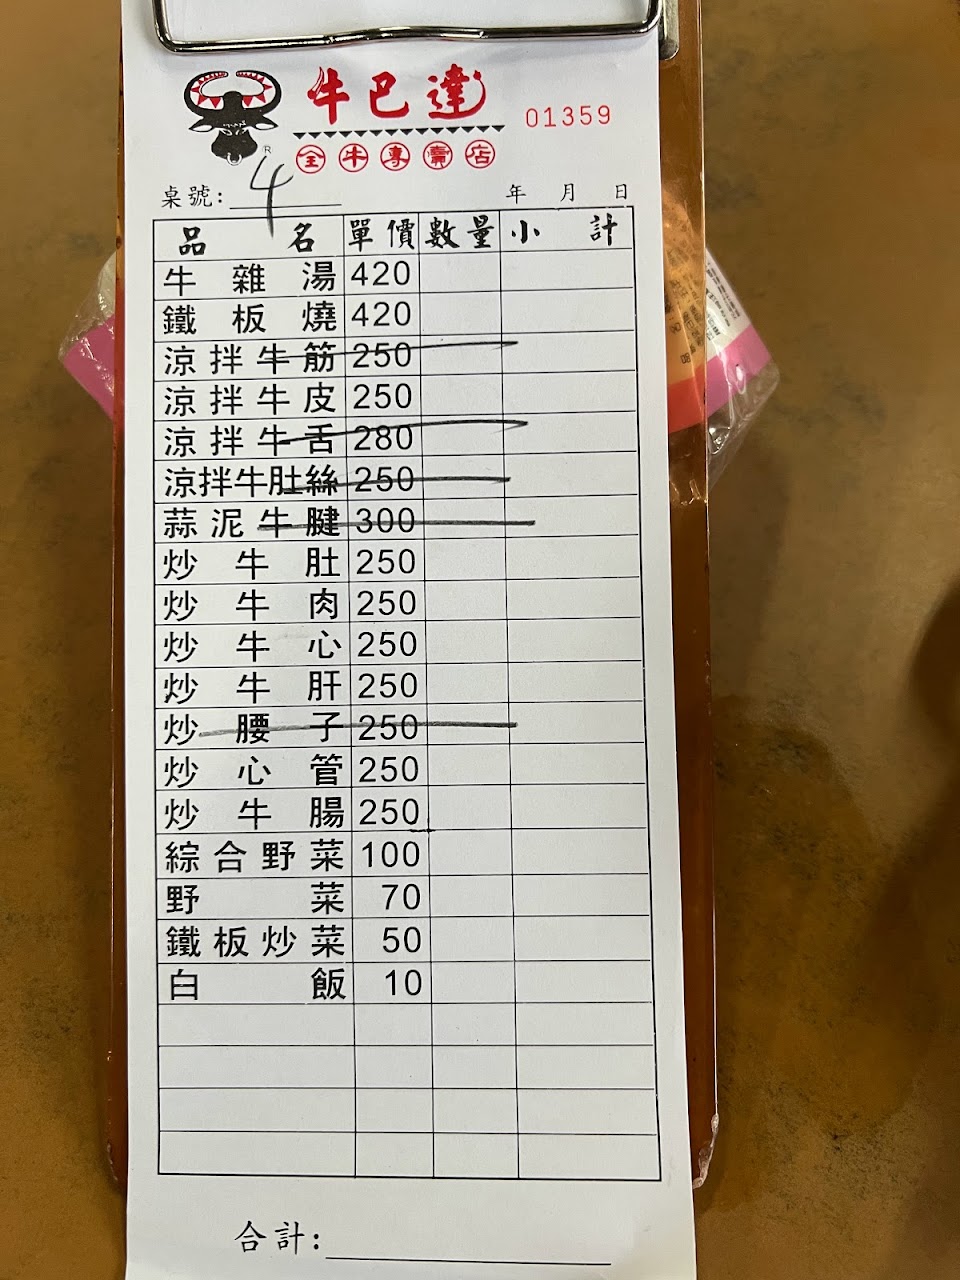 牛巴達
01359
全牛專賣店
R
桌號: 4 年 月 日
品名 單價 數量 小計
牛雜湯 420
鐵板燒 420
涼拌牛筋 250
涼拌牛皮 250
涼拌牛舌 280
涼拌牛肚絲 250
蒜泥牛腱 300
炒牛肚 250
炒牛肉 250
炒牛心 250
炒牛肝 250
炒腰子 250
炒心管 250
炒牛腸 250
綜合野菜 100
野菜 70
鐵板炒菜 50
白飯 10
合計: